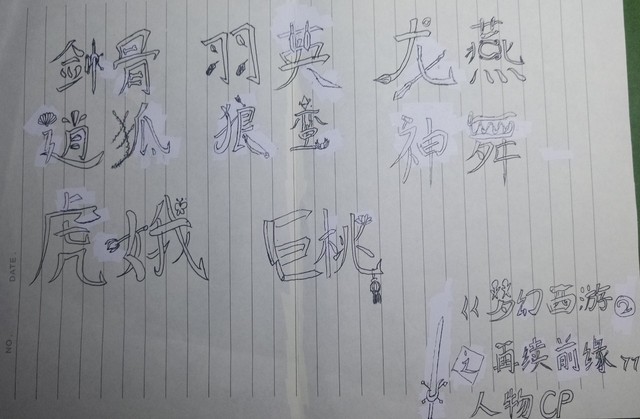 剑骨 羽英 龙燕
逍狐 狼蛮 神舞
虎娥 巨桃
《梦幻西游②
之再续前缘》
人物CP
NO
DATE.